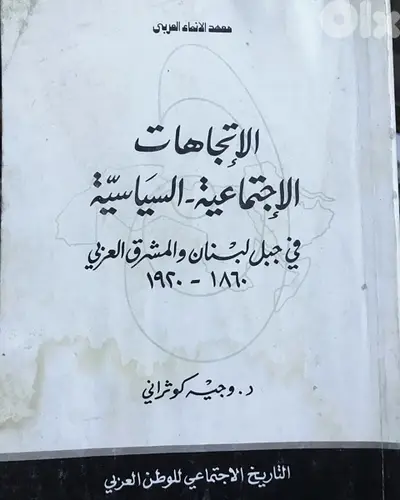 معهد الانماء العربي
OLX
الإتجاهات
الإجتماعية - السيَاسيّة
في جبل لبنان والمشرق العربي
١٨٦٠ - ١٩٢٠
د. وجيه كوثراني
التاريخ الاجتماعي للوطن العربي